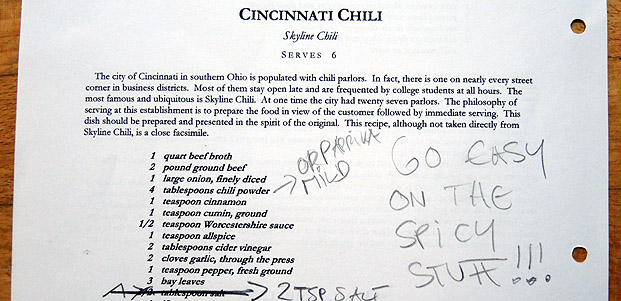 CINCINNATI CHILI
Skyline Chili
SERVES 6
The city of Cincinnati in southern Ohio is populated with chili parlors. In fact, there is one on nearly every street
corner in business districts. Most of them stay open late and are frequented by college students at all hours. The
most famous and ubiquitous is Skyline Chili. At one time the city had twenty seven parlors. The philosophy of
serving at this establishment is to prepare the food in view of the customer followed by immediate serving. This
dish should be prepared and presented in the spirit of the original. This recipe, although not taken directly from
Skyline Chili, is a close facsimile.
1 quart beef broth
2 pound ground beef
1 large onion, finely diced
4 tablespoons chili powder
OR PAPRIKA
MILD
1 teaspoon cinnamon
1 teaspoon cumin, ground
1/2 teaspoon Worcestershire sauce
1 teaspoon allspice
2 tablespoons cider vinegar
2 cloves garlic, through the press
1 teaspoon pepper, fresh ground
3 bay leaves
tablespoon salt
2 TSP SALT
GO EASY
ON THE
SPICY
STUFF!!!